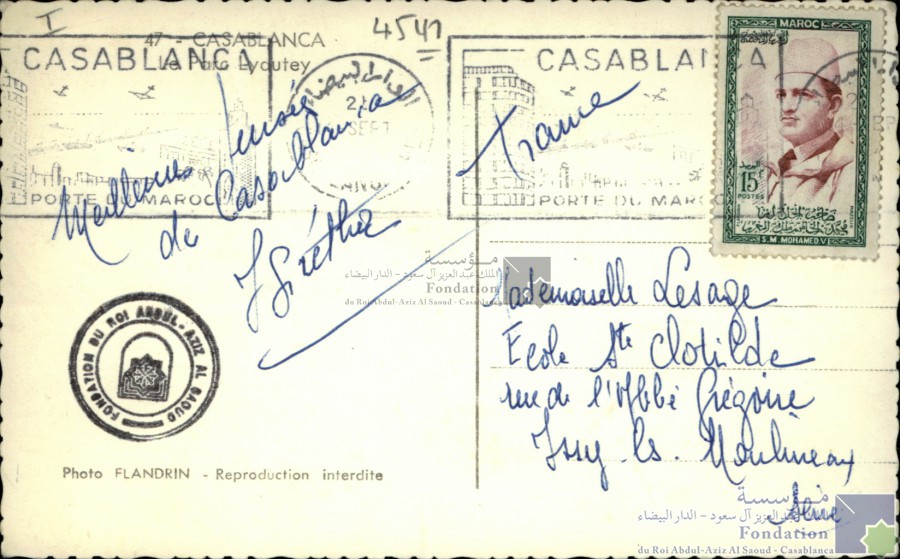 I
4541
47 - CASABLANCA
Le Parc Lyautey
CASABLANCA
PORTE DU MAROC
الدار البيضاء
SEPT
CASABLANCA
PORTE DU MAROC
MAROC
15
POSTES
البريد
S.M. MOHAMED V
Meilleures pensées
de Casablanca
France
Mademoiselle Lesage
Ecole Ste Clotilde
rue de l'Abbé Grégoire
Issy. ls. Moulineaux
Seine
FONDATION DU ROI ABDUL-AZIZ AL SAOUD
Photo FLANDRIN - Reproduction interdite
مؤسسة
الملك عبد العزيز آل سعود - الدار البيضاء
Fondation
du Roi Abdul-Aziz Al Saoud - Casablanca
مؤسسة
الملك عبد العزيز آل سعود - الدار البيضاء
Fondation
du Roi Abdul-Aziz Al Saoud - Casablanca